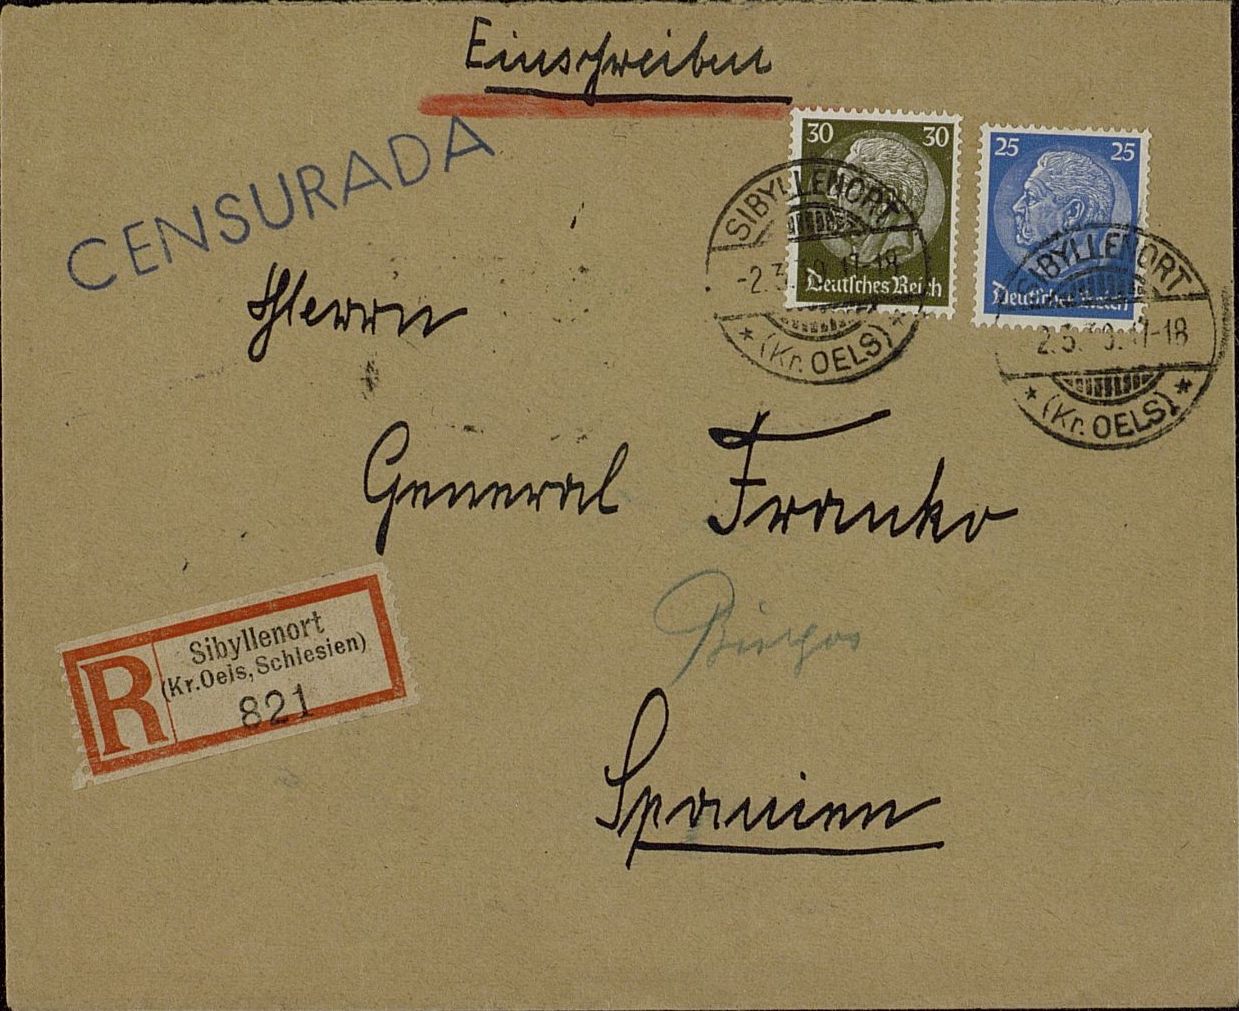 Einschreiben
CENSURADA
30 30
Deutsches Reich
25 25
Deutsches Reich
SIBYLLENORT
-2.3. 17-18
* (Kr. OELS) *
SIBYLLENORT
2.3. 17-18
* (Kr. OELS) *
Herrn
General Franko
Burgos
Spanien
R
Sibyllenort
(Kr. Oels, Schlesien)
821